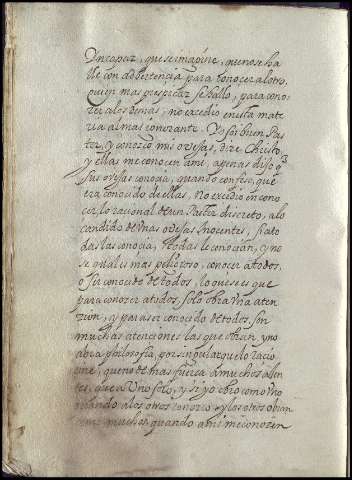 Uncapaz, que se imagine, que no se ha
lle con advertencia para conocer al otro,
quien mas perspicaz se hallo, para cono
zer a los demas, no excedio en esta mate
ria al mas ignorante. Yo soi buen Pas
tor, y conozco mis ovejas, dize Christo,
y ellas me conocen a mi, apenas dijo q.e
sus ovejas conocia, quando confeso, que
era conocido de ellas, No excedio en cono
cer lo racional de un Pastor discreto, a lo
candido de Unas ovejas inocentes, si a to
das las conocia, todas le conocian, y no
se qual es mas peligroso, conocer a todos,
o ser conocido de todos, lo que se es que
para conozer a todos, solo obra Una aten
zion, y para ser conocido de todos, son
muchas atenciones las que obran y no
abra philosofia, por singular que lo racio
cine, que no de mas fuerza a muchos alien
tes, que a Uno solo, y si yo obro como Uno
quando a los otros conozco, y los otros obran
como muchos quando a mi me conozen